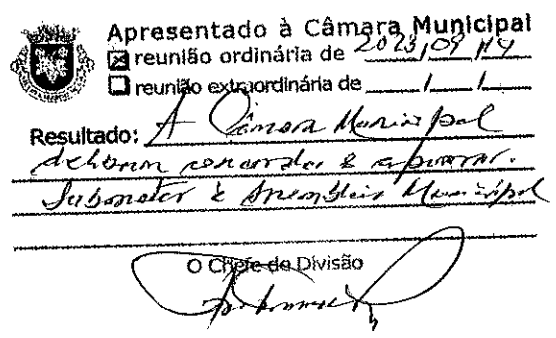 Apresentado à Câmara Municipal
☒ reunião ordinária de 2023/09/14
☐ reunião extraordinária de ___/___/___
Resultado: A Câmara Municipal
deliberou concordar e aprovar.
Submeter à Assembleia Municipal
O Chefe de Divisão